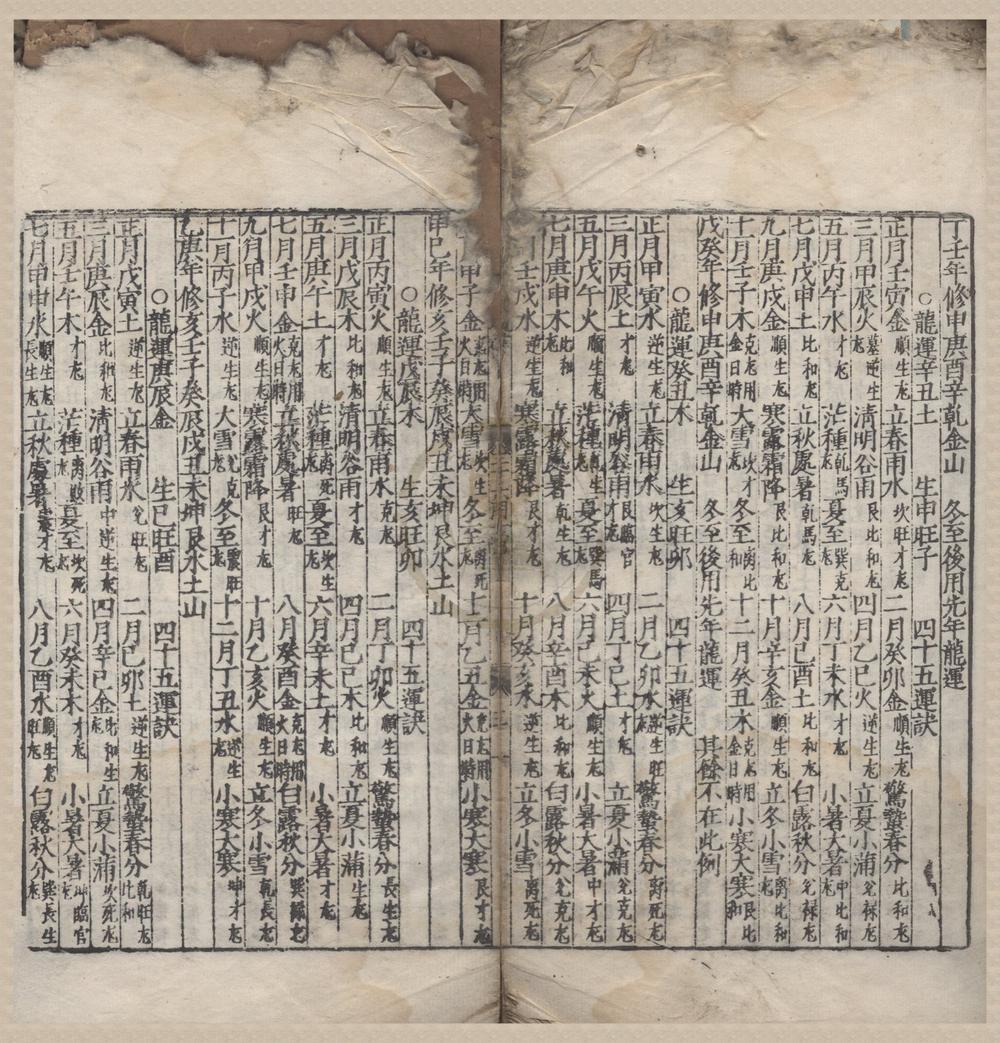 丁壬年 修申庚酉辛乾金山 冬至後用先年龍運
○龍運辛丑土 生申旺子 四十五運訣
正月壬寅金 順生尨 立春雨水 坎旺才尨 二月癸卯金 順生尨 驚蟄春分 比和尨
三月甲辰火 墓逆生尨 清明谷雨 艮比和尨 四月乙巳火 逆生尨 立夏小滿 兊祿尨
五月丙午水 才尨 芒種 乾馬尨 夏至 巽克尨 六月丁未水 才尨 小暑大暑 中比和尨
七月戊申土 比和尨 立秋處暑 乾馬尨 八月己酉土 比和尨 白露秋分 兊祿尨
九月庚戌金 順生尨 寒露霜降 艮比和尨 十月辛亥金 順生尨 立冬小雪 離比和尨
十一月壬子木 克尨用金日時 大雪 坎才尨 冬至 離比和 十二月癸丑木 克尨用金日時 小寒大寒 艮比和
戊癸年 修申庚酉辛乾金山 冬至後用先年龍運 其餘不在此例
○龍運癸丑木 生亥旺卯 四十五運訣
正月甲寅水 逆生尨 立春雨水 坎生尨 二月乙卯水 逆旺尨 驚蟄春分 離死尨
三月丙辰土 才尨 清明谷雨 艮臨官尨 四月丁巳土 才尨 立夏小滿 兊克尨
五月戊午火 順生尨 芒種 乾生尨 夏至 巽馬尨 六月己未火 順生尨 小暑大暑 中才尨
七月庚申木 比和尨 立秋處暑 乾生尨 八月辛酉木 比和尨 白露秋分 兊克尨
壬戌水 逆生尨 寒露霜降 艮才尨 十月癸亥水 逆生尨 立冬小雪 離死尨
甲子金 克尨用火日時 大雪 坎生尨 冬至 離死尨 十二月乙丑金 克尨用火日時 小寒大寒 艮才尨
甲己年 修亥壬子癸辰戌丑未坤艮水土山
○龍運戊辰木 生亥旺卯 四十五運訣
正月丙寅火 順生尨 立春雨水 克尨 二月丁卯火 順生尨 驚蟄春分 長生尨
三月戊辰木 比和尨 清明谷雨 才尨 四月己巳木 比和尨 立夏小滿 生尨
五月庚午土 才尨 芒種 離死尨 夏至 坎生尨 六月辛未土 才尨 小暑大暑 才尨
七月壬申金 克尨用火日時 立秋處暑 旺尨 八月癸酉金 克尨用火日時 白露秋分 巽祿尨
九月甲戌火 順生尨 寒露霜降 艮才尨 十月乙亥火 順生尨 立冬小雪 乾長尨
十一月丙子水 逆生尨 大雪 兊克尨 冬至 震旺尨 十二月丁丑水 逆生尨 小寒大寒 坤才尨
乙庚年 修亥壬子癸辰戌丑未坤艮水土山
○龍運庚辰金 生巳旺酉 四十五運訣
正月戊寅土 逆生尨 立春雨水 兊旺尨 二月己卯土 逆生尨 驚蟄春分 乾旺尨比和
三月庚辰金 比和尨 清明谷雨 中逆生尨 四月辛巳金 比和生尨 立夏小滿 坎死尨
五月壬午木 才尨 芒種 離殺尨 夏至 坎死尨 六月癸未木 才尨 小暑大暑 坤臨官尨
七月甲申水 順生尨長生 立秋處暑 震才尨 八月乙酉水 順生尨旺尨 白露秋分 巽長生尨